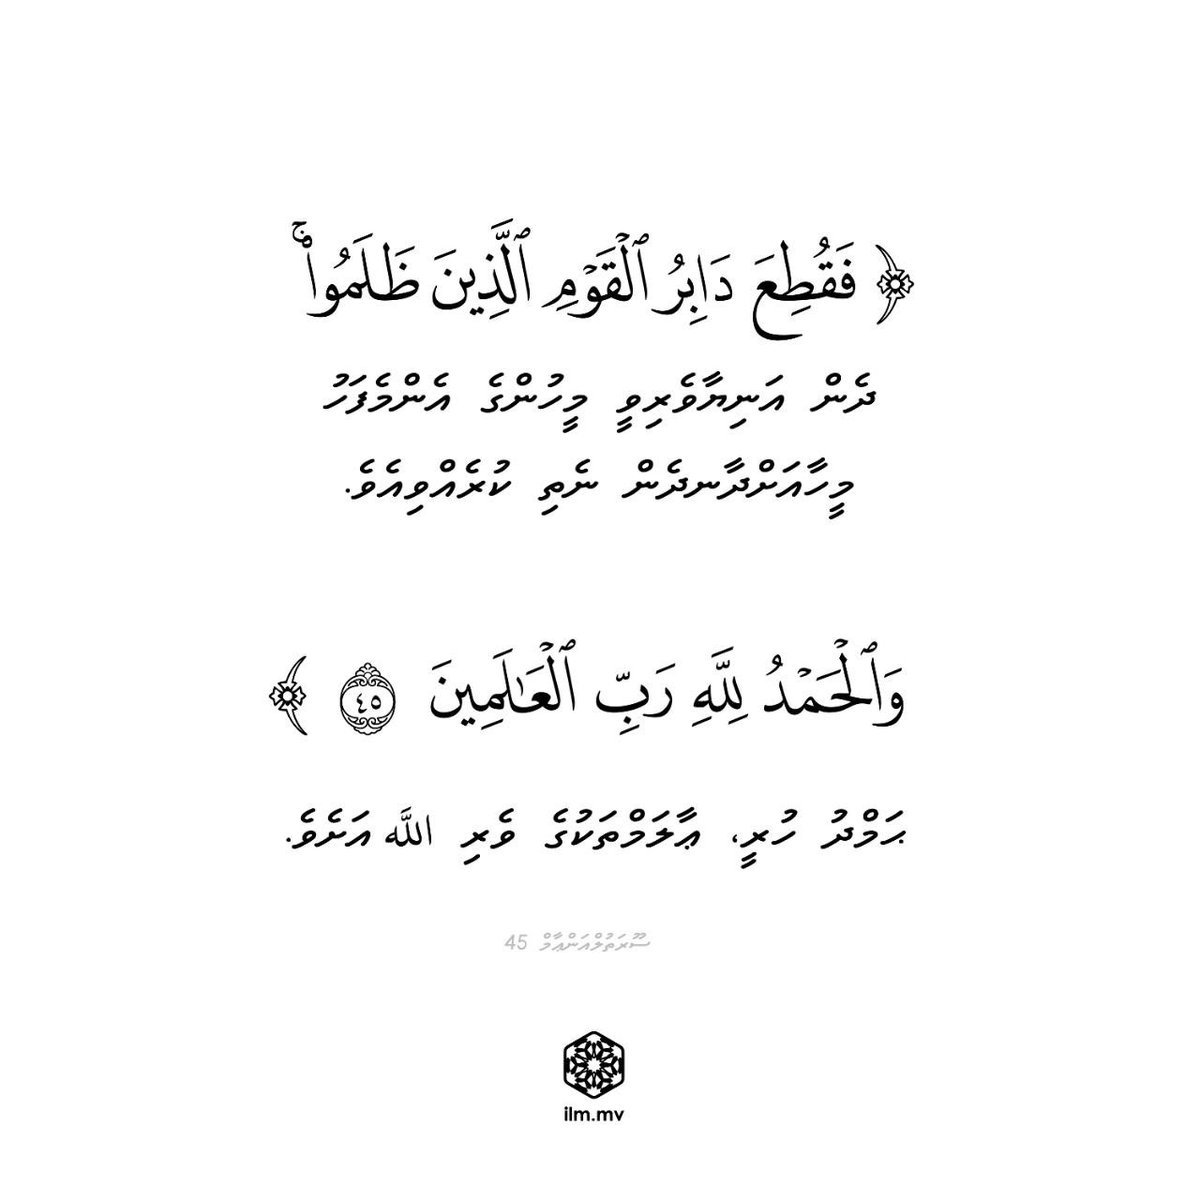 ﴿ فَقُطِعَ دَابِرُ ٱلْقَوْمِ ٱلَّذِينَ ظَلَمُوا۟ ۚ
ދެން އަނިޔާވެރިވީ މީހުންގެ އެންމެފަހު
މީހާއަށްދާނދެން ނެތި ކުރެއްވިއެވެ.
وَٱلْحَمْدُ لِلَّهِ رَبِّ ٱلْعَـٰلَمِينَ ٤٥ ﴾
ޙަމްދު ހުރީ، ޢާލަމްތަކުގެ ވެރި اللَّه އަށެވެ.
ސޫރަތުލްއަންޢާމް 45
ilm.mv